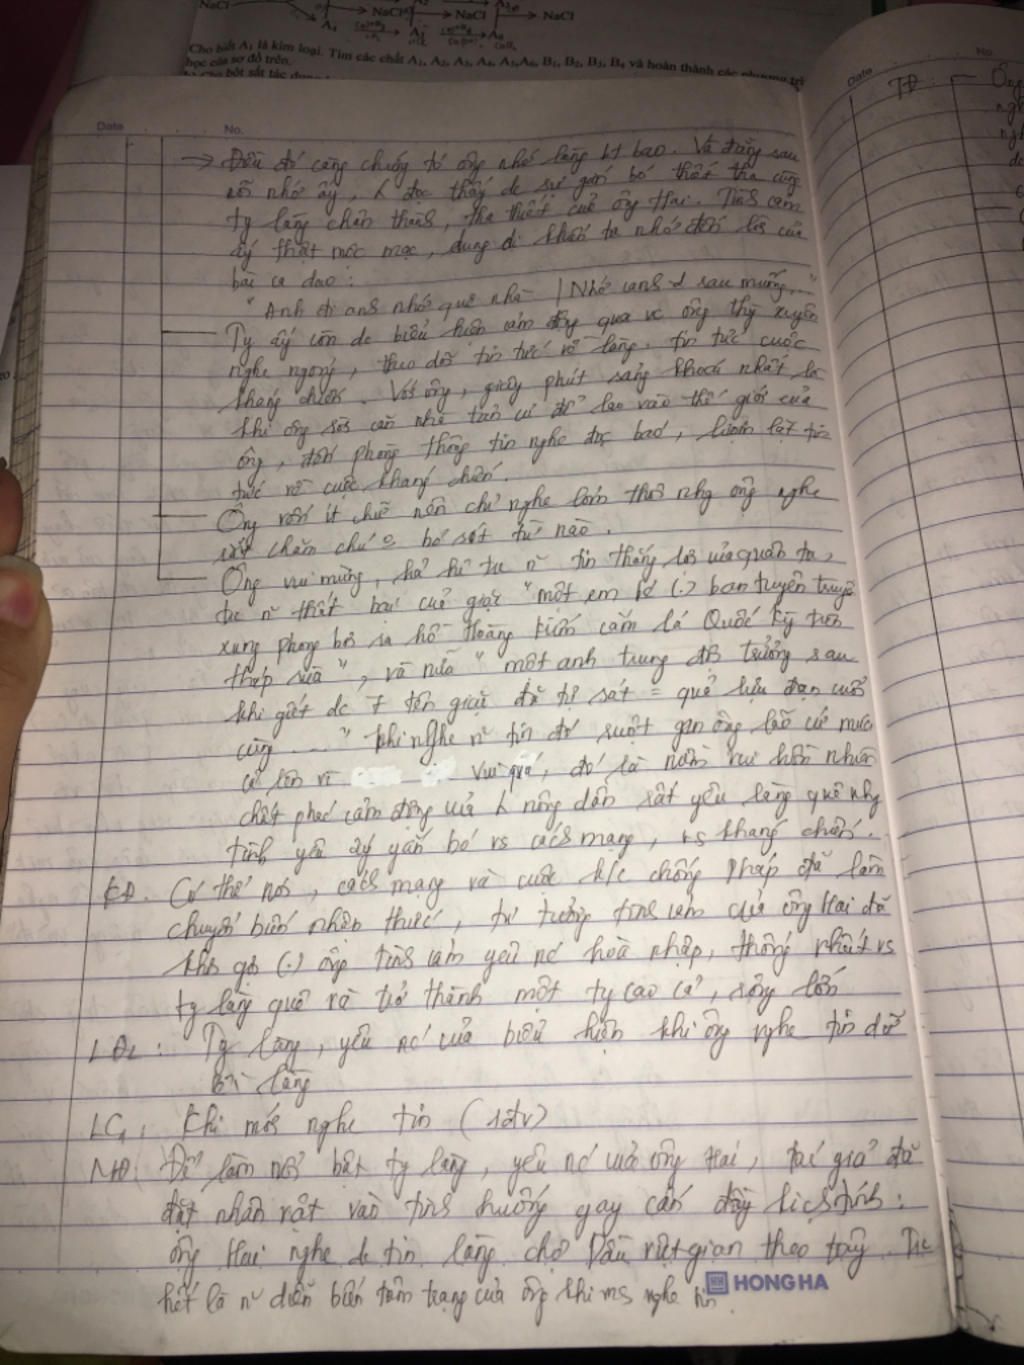 NaCl NaCl NaCl NaCl
Cho biết A₁ là kim loại. Tìm các chất A₁, A₂, A₃, A₄, A₅, A₆, B₁, B₂, B₃, B₄ và hoàn thành các phương trì
học của sơ đồ trên.
Date No.
→ Điều đó càng chứng tỏ ông nhớ làng bt bao. Và đằng sau
nỗi nhớ ấy, ta đọc thấy đc sự gắn bó thiết tha cùng
ty làng chân thành, tha thiết của ông Hai. Tình cảm
ấy thật mộc mạc, dung dị khiến ta nhớ đến lời của
bài ca dao:
"Anh đi anh nhớ quê nhà / Nhớ canh r sau muống..."
Ty ấy còn đc biểu hiện cảm động qua vc ông thg xuyên
nghe ngóng, theo dõi tin tức về làng, tin tức cuộc
kháng chiến. Với ông, giây phút sảng khoái nhất là
khi ông rời căn nhà tản cư để lao vào thế giới của
ông, đến phòng thông tin nghe đọc báo, lượm lặt tin
tức về cuộc kháng chiến.
Ông vốn ít chữ nên chỉ nghe lỏm thôi nhg ông nghe
rất chăm chú bỏ sót từ nào.
Ông vui mừng, hả hê trc n~ tin thắng lợi của quân ta,
trc n~ thất bại của giặc "một em bé (.) ban tuyên truyền
xung phong bơi ra hồ Hoàng Kiếm cắm lá Quốc kỳ trên
tháp rùa", và nữa "một anh trung đội trưởng sau
khi giết đc 7 tên giặc đã tự sát = quả lựu đạn cuối
cùng ...." khi nghe n~ tin đó ruột gan ông lão cứ múa
cả lên vì vui quá, đó là niềm vui hồn nhiên
chất phác cảm động của 1 nông dân rất yêu làng quê nhg
tình yêu ấy gắn bó vs cách mạng, vs kháng chiến.
KĐ. Có thể nói, cách mạng và cuộc k/c chống Pháp đã làm
chuyển biến nhận thức, tư tưởng tình cảm của ông Hai đã
khơi gợi (.) ông tình cảm yêu nc hoà nhập, thống nhất vs
ty làng quê và trở thành một ty cao cả, rộng lớn
LĐ2: Ty làng, yêu nc của biểu hiện khi ông nghe tin dữ
về làng
LC1: Khi mới nghe tin (sdtv)
NĐ: Để làm nổi bật ty làng, yêu nc của ông Hai, tác giả đã
đặt nhân vật vào tình huống gay cấn đầy kịch tính:
ông Hai nghe đc tin làng chợ Dầu việt gian theo tây. Trc
hết là n~ diễn biến tâm trạng của ông khi ms nghe tin.
HONG HA
Date No.
TĐ